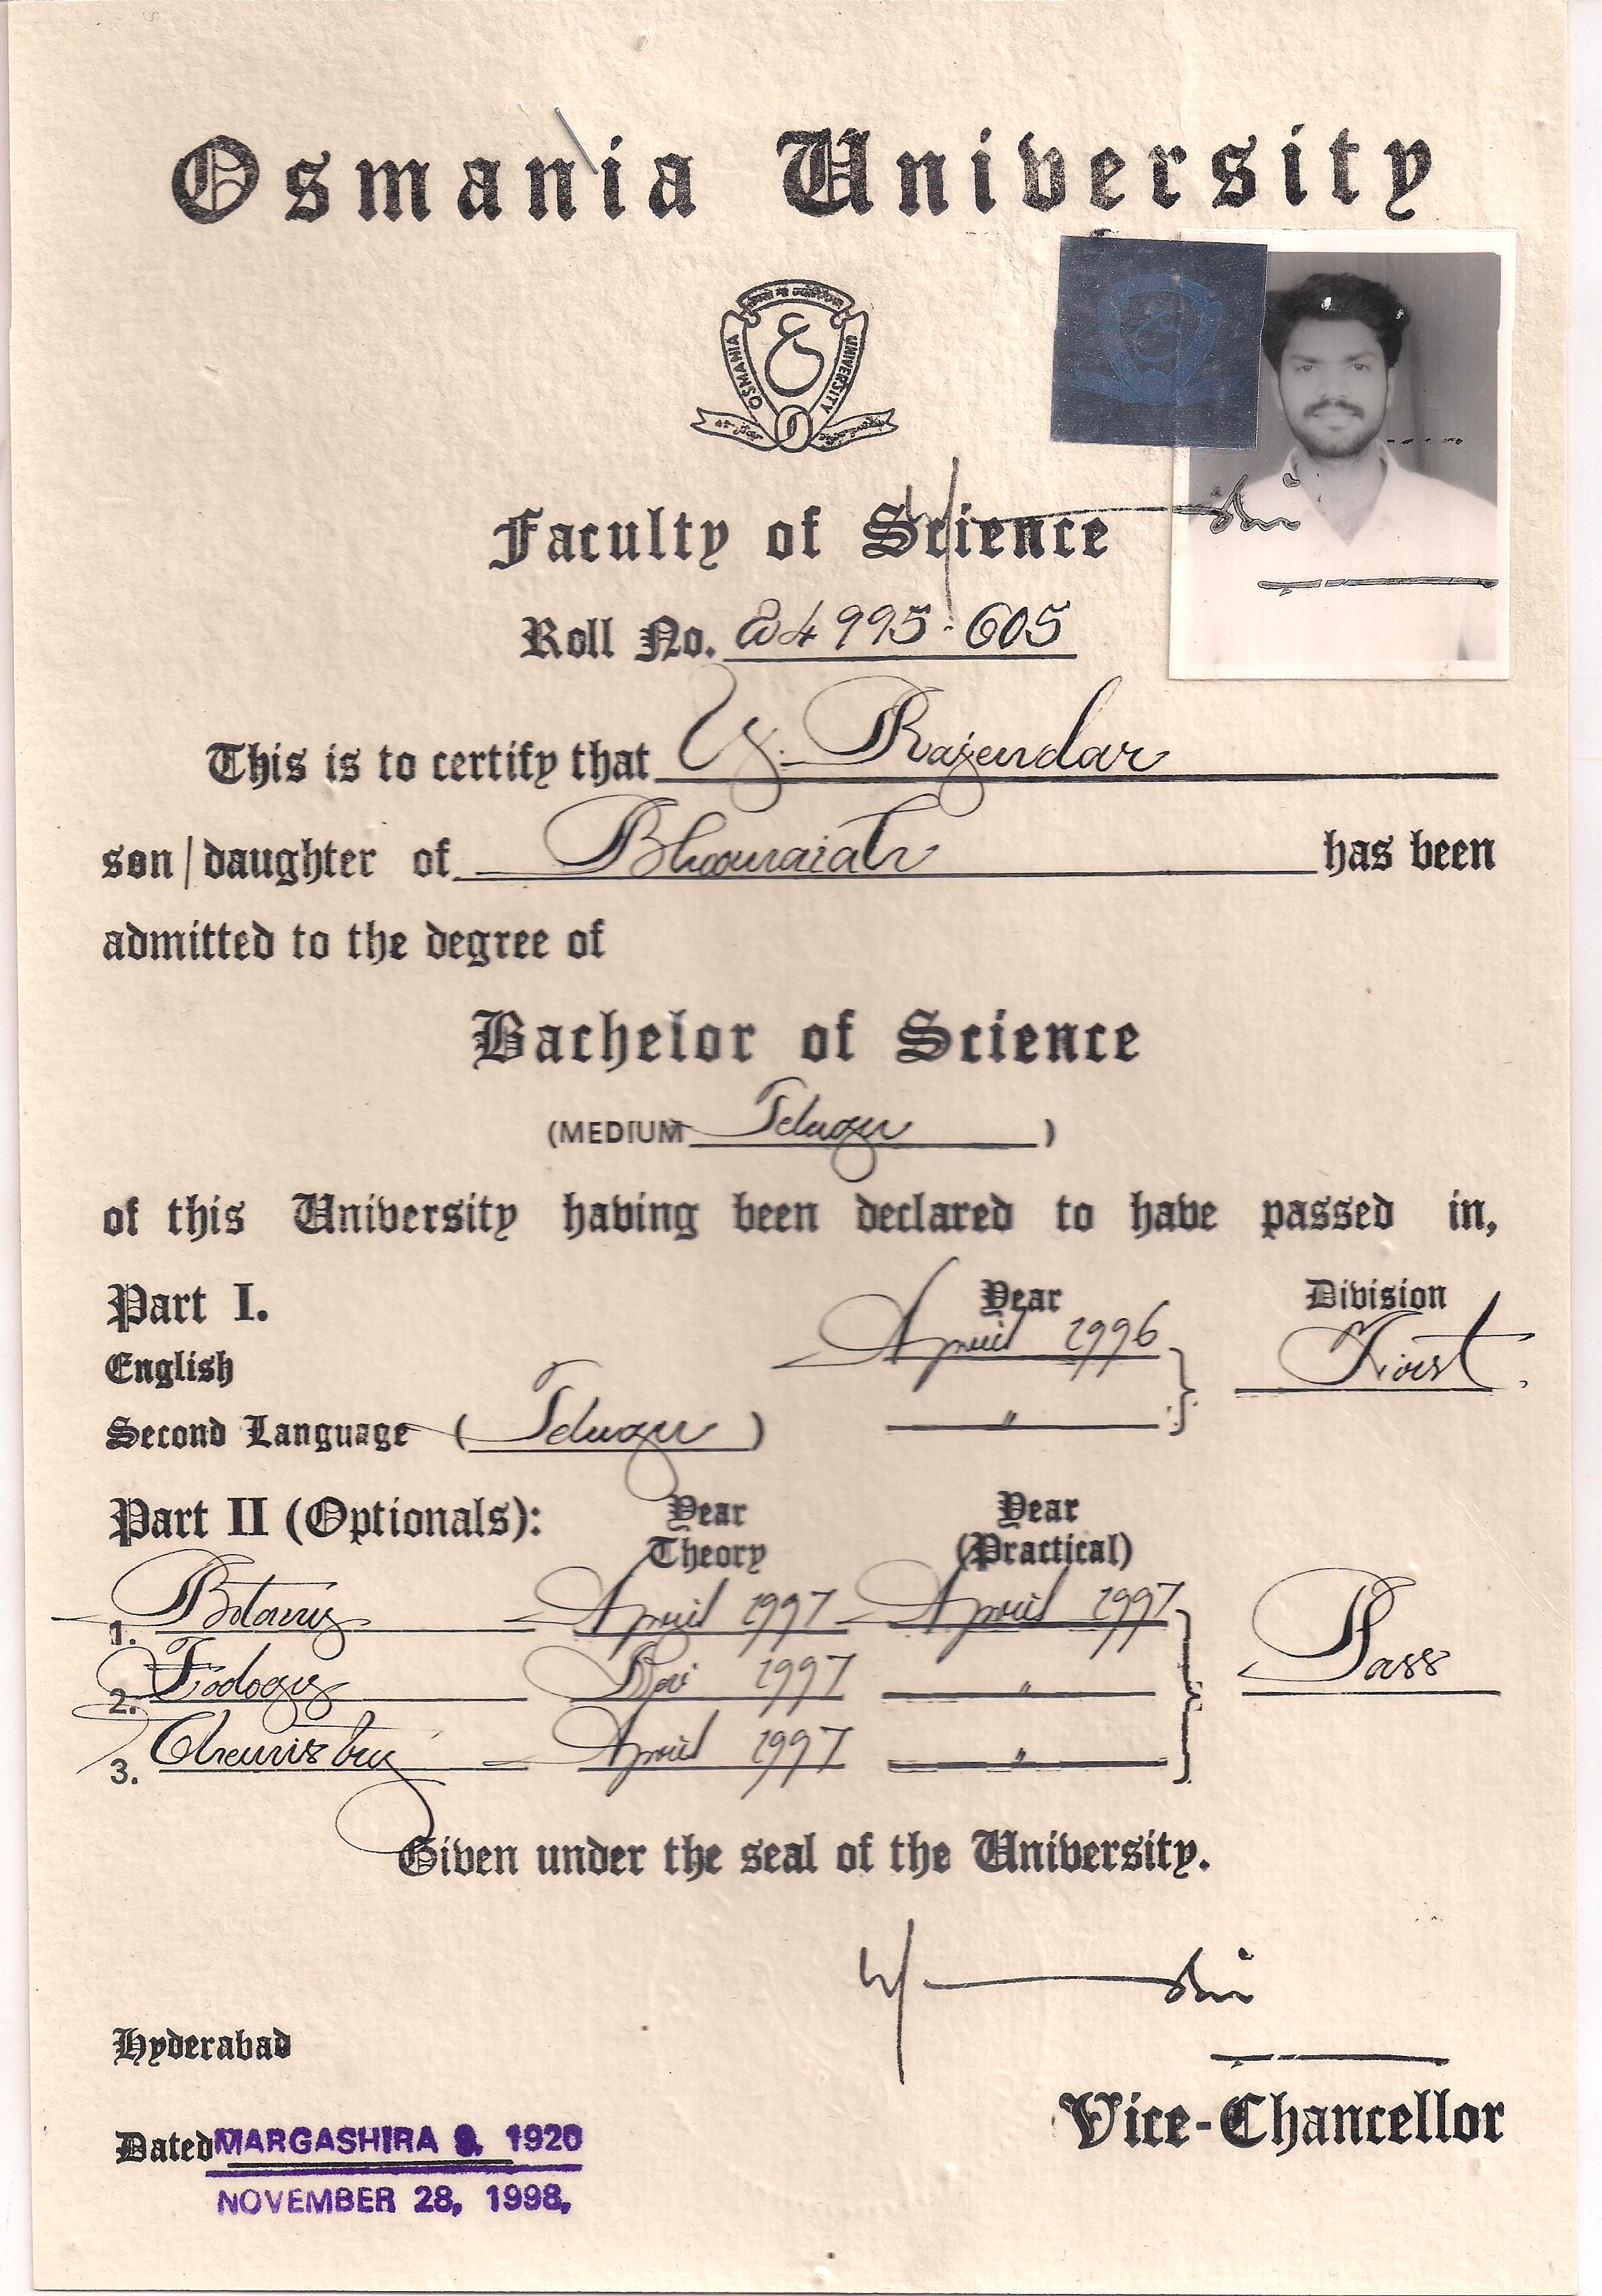 Osmania University
OSMANIA UNIVERSITY
Faculty of Science
Roll No. 84995-605
This is to certify that G. Rajendar
son/daughter of has been
admitted to the degree of
Bachelor of Science
(MEDIUM Telugu )
of this University having been declared to have passed in,
Part I. Year Division
English April 1996 First
Second Language ( Telugu ) "
Part II (Optionals): Year Theory Year (Practical)
1. Botany April 1997 April 1997 Pass
2. Zoology 1997 "
3. Chemistry April 1997 "
Given under the seal of the University.
Hyderabad
Vice-Chancellor
Dated MARGASHIRA 1920
NOVEMBER 28, 1998,